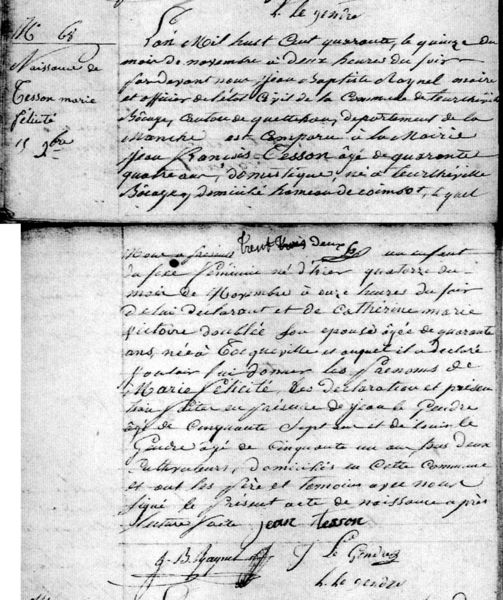 L. Le gendre
N° 65
Naissance de
Tesson marie
félicité
15 9bre
L'an Mil huit Cent quarante, le quinze du
mois de novembre à deux heures du soir
par devant nous Jean Baptiste Raynel maire
et officier de l'état Civil de la Commune de teurtheville
Bocage, Canton de quettehou, département de la
Manche est Comparu à la Mairie
Jean François Tesson âgé de quarante
quatre ans, domestique, né à teurtheville
Bocage y domicilié hameau de, lequel
Nous a présenté un enfant
du sexe féminin né d'hier quatorze du
mois de Novembre à onze heures du soir
de lui déclarant et de Catherine marie
victoire doublée son épouse âgée de quarante
ans, née à Tocqueville et auquel il a déclaré
vouloir lui donner les Prénoms de
Marie félicité, Les déclaration et présen
tation faites en présence de jean le Gendre
âgé de Cinquante Sept ans et de louis le
Gendre âgé de Cinquante un ans tous deux
Cultivateurs, domiciliés en Cette Commune
et ont les père et temoins avec nous
signé le Présent acte de naissance après
lecture faite jean tesson
J. B. Raynel J Le Gendre
L. Le gendre